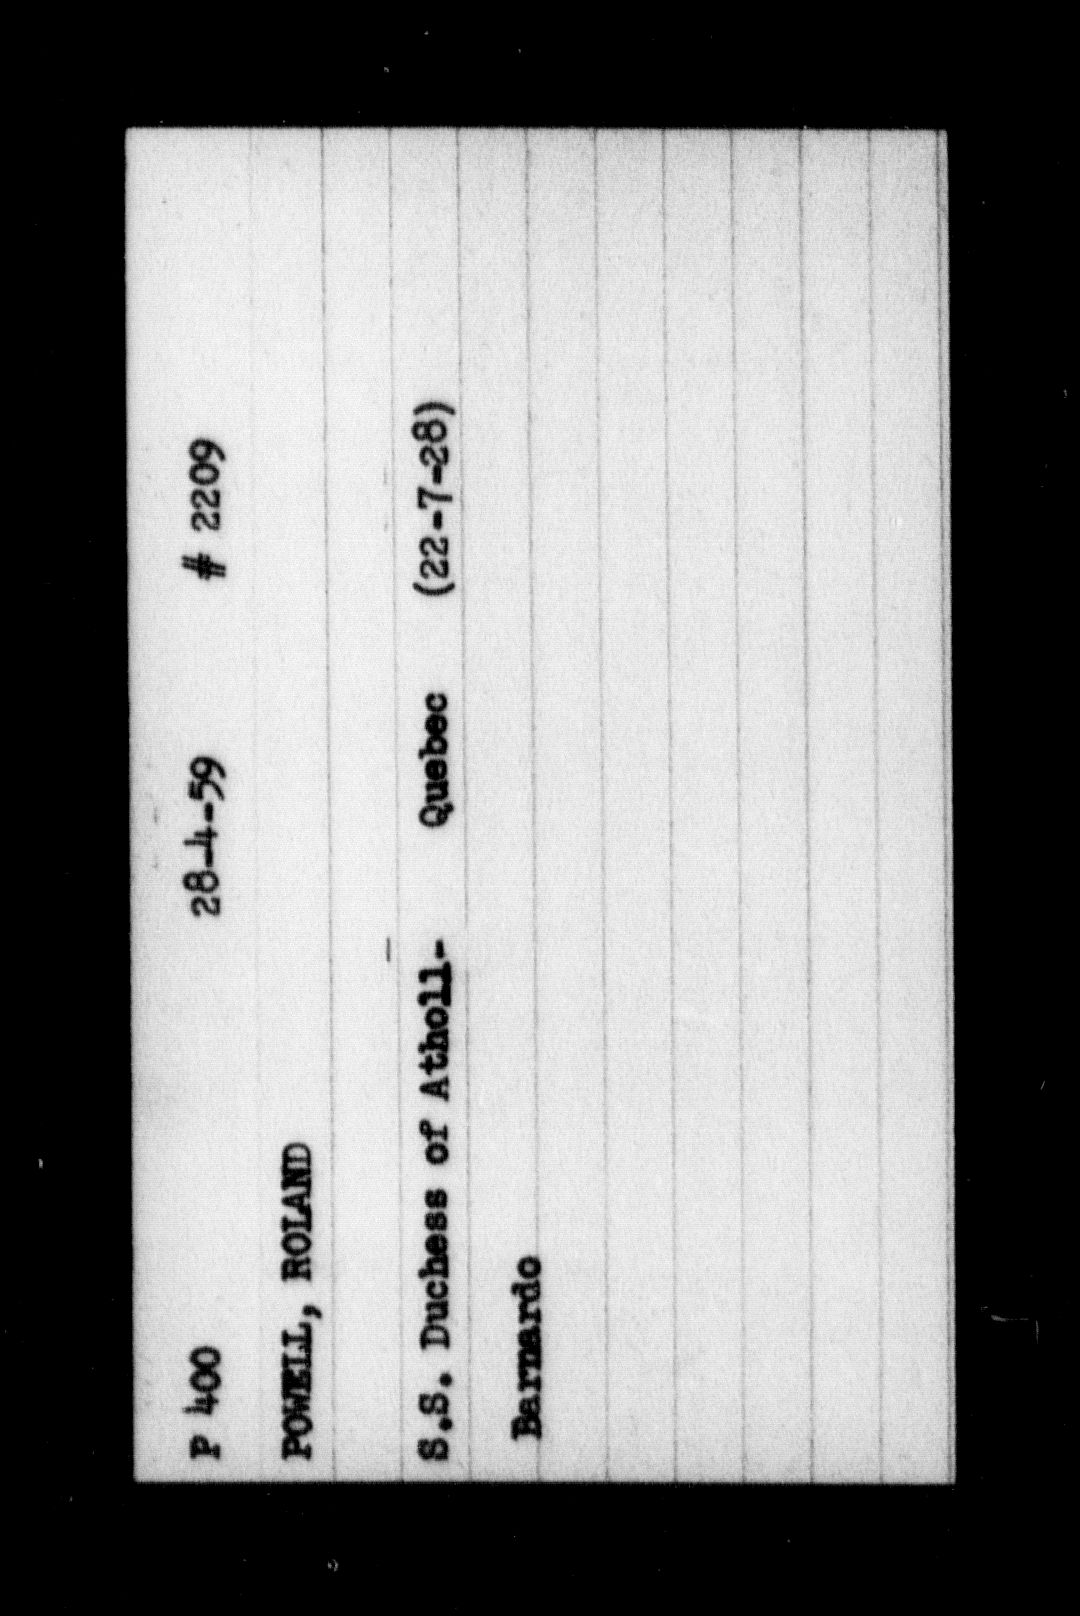 P 400 28-4-59 # 2209
POWELL, ROLAND
S.S. Duchess of Atholl- Quebec (22-7-28)
Barnardo